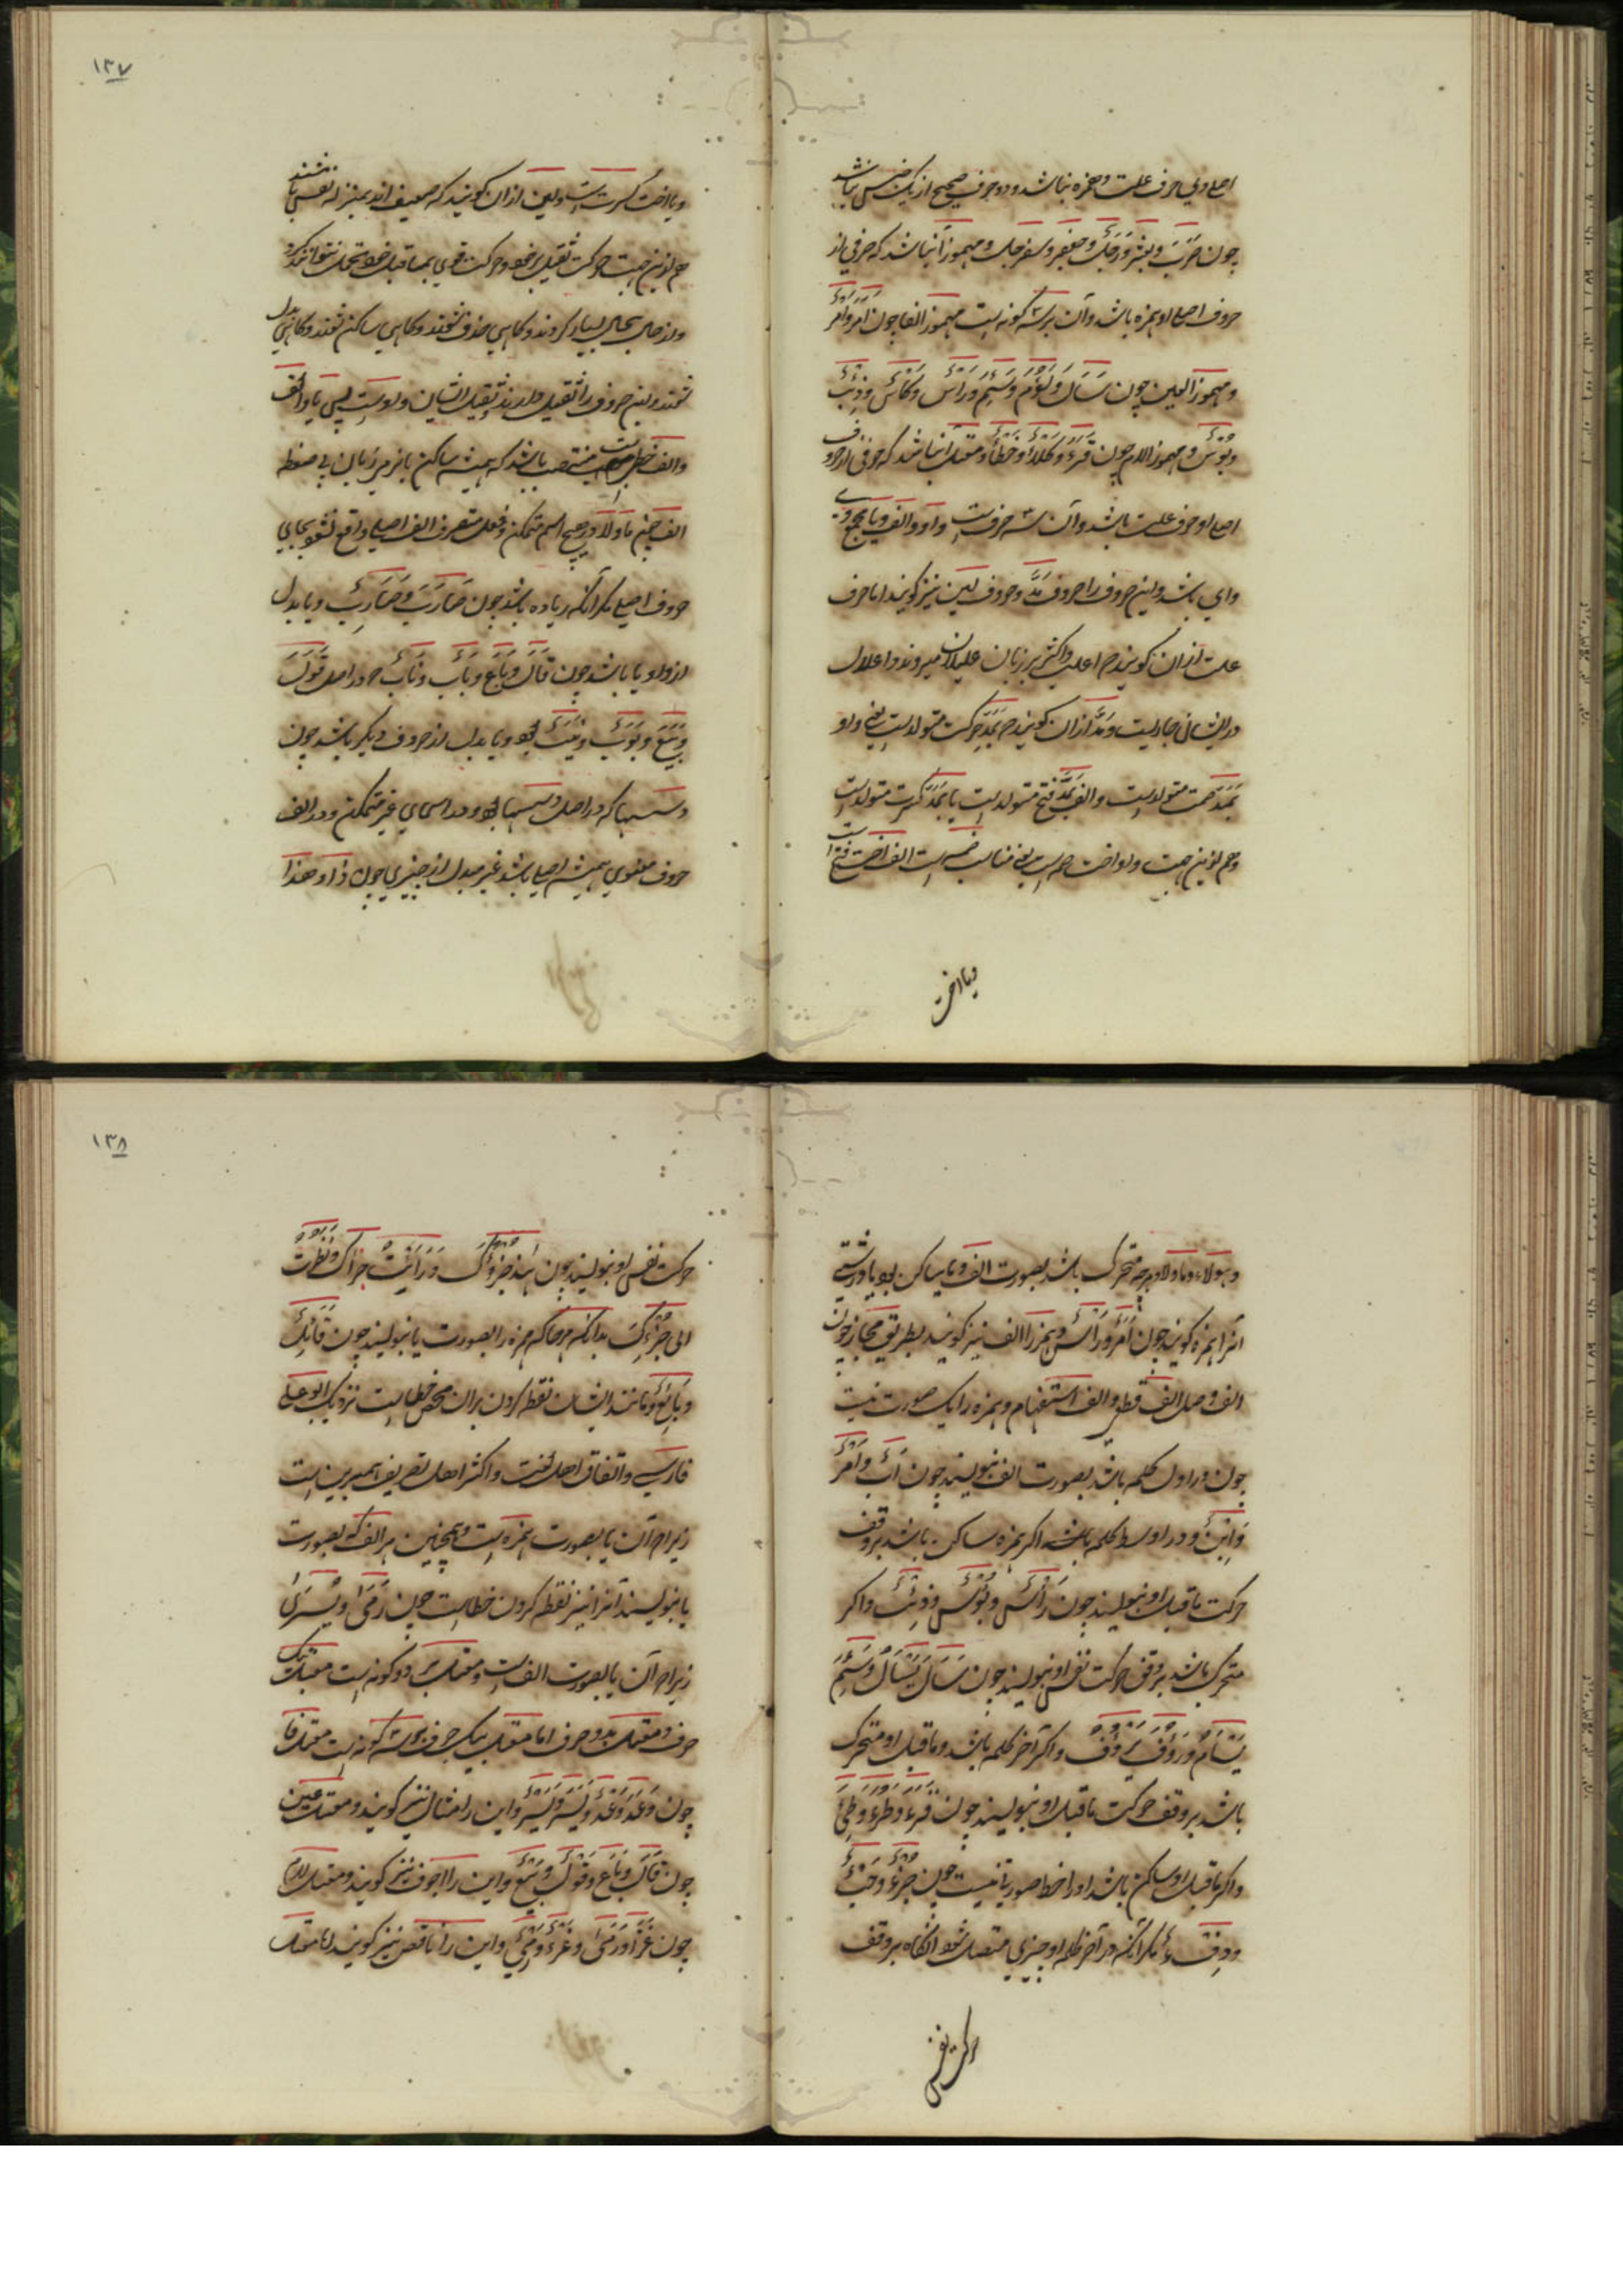 اصلی وی حرف علت و همزه نباشد و دو حرف صحیح از یک جنس نباشد
چون ضَرَبَ و بعثر وَرَجُلٌ وجعفر وسفرجل و مهموز آن باشد که حرفی از
حروف اصلی او همزه باشد و آن بر سه گونه است مهموز الفا چون اَمَرَ واَمْرٌ
و مهموز العین چون سَـَٔالَ وَ لَؤُمَ وَسَئِمَ وَ رَأْسٌ وَ كَأْسٌ وَ ذِئْبٌ
وَ بُؤْسٌ و مهموز اللام چون قَرَءَ وَ كَلَاءَ وَ خَطَأَ و معتل آن باشد که حرفی از حروف
اصلی او حرف علت باشد و آن سه حرف است واو و الف و یا مجموع وی
وای باشد و این حروف را حروف مَدّ و حروف لین نیز گویند اما حرف
علت از ان گویند که اغلب و اکثر بر زبان علیلان میرود و اعلال
در ایشان جاریست و مَدّ از ان گویند که بَمَدّ حرکت متولد است یعنی واو
بَمَدّ ضمت متولد است و الف بَمَدّ فتح متولد است یا بَمَدّ کسرت متولد است
و هم ازین جهت واو اخت ضمه است یعنی مناسب ضمه است الف اخت فتح است
ویا اخت
۱۳۷
ویا اخت کسرت است ولین از ان گویند که ضعیف اند بمنزله نفس باشند
هم ازین جهت حرکت ثقیل بر خود و حرکت قوی بماقبل خود تحمل نتوانند کرد
و از حال بحال بسیار گردند و گاهی حذف شوند و گاهی ساکن شوند و گاهی بدل
شوند و این حروف را ثقیل دارند ثقیل ایشان واو است پس یا و الف
والف خطی است منتصب باشد که همیشه ساکن باز می زبان بی ضغطه
الف چون ما و لا و در هیچ اسم متمکن و فعل متصرف الف اصلی واقع نشود بجای
حروف اصلی مگر آنکه زیاده باشد چون ضَارَبَ وَ ضَارِبٌ ویا بدل
از واو یا یا باشد چون قَالَ وَ بَاعَ وَ بَابٌ وَ نَابٌ که در اصل قَوَلَ
وَ بَيَعَ وَ بَوَبٌ وَ نَيَبٌ بود و یا بدل از حروف دیگر باشد چون
دسّیها که در اصل دسّسها بود و در اسمای غیر متمکن و در الف
حروف معنوی همیشه اصلی باشد غیر مبدل از چیزی چون ذا و هذا
و هؤلاء و ما و لا و هرچه متحرک باشد بصورت الف و یا ساکن بود با درشتی
آنرا همزه گویند چون اَمَرَ وَ رَأْسٌ و همزه را الف نیز گویند بطریق مجاز چون
الف وصل الف قطع و الف استفهام و همزه را یک صورت نیست
چون در اول کلمه باشد بصورت الف نویسند چون اَبٌ وَ اَمْرٌ
وَ اِبْنٌ و در اوسط کلمه باشد اگر همزه ساکن باشد بر وفق
حرکت ماقبل او نویسند چون رَأْسٌ وَ بُؤْسٌ وَ ذِئْبٌ و اگر
متحرک باشد بر وفق حرکت نفس او نویسند چون سَـَٔالَ يَسْـَٔالُ وَ سَئِمَ
يَسْـَٔامُ وَ رَؤُفَ يَرْؤُفُ و اگر آخر کلمه باشد و ماقبل او متحرک
باشد بر وفق حرکت ماقبل او نویسند چون قَرَءَ وَ طَرُءَ وَ طِئَ
و اگر ماقبل او ساکن باشد او را خطا صورتی نیست چون جُزْءٌ وَ خَبْءٌ
وَ دِفْءٌ مگر آنکه در آخر کلمه او چیزی متصل شود آنگاه بر وفق
حرکت نفس
۱۳۸
حرکت نفس او نویسند چون هٰذَا جُزْؤُكَ وَ رَأَيْتُ جُزْأَكَ وَ نَظَرْتُ
الی جُزْئِكَ بدانکه هرجا که همزه را بصورت یا نویسند چون قَائِلٌ
وَ بَائِعٌ و مانند ایشان نقطه کردن بران محض خطا است نزدیک ابو علی
فارسی و اتفاق اهل لغت و اکثر اهل تصریف همبرین است
زیرا که آن یا بصورت همزه است و همچنین هر الف که بصورت
یا نویسند آنرا نیز نقطه کردن خطا است چون رَمٰى و يُسْرٰى
زیرا که آن یا بصورت الف است و معتل بر دو گونه است معتل بیک
حرف و معتل بدو حرف اما معتل بیک حرف بر سه گونه است معتل فا
چون وَعَدَ وَعْدٌ وَ يَسَرَ وَ يُسْرٌ و این را مثال نیز گویند و معتل عین
چون قَالَ وَ بَاعَ وَ قَوْلٌ وَ بَيْعٌ و این را اجوف نیز گویند و معتل لام
چون غَزَا وَ رَمَى وَ غَزْوٌ وَ رَمْيٌ و این را ناقص نیز گویند اما معتل